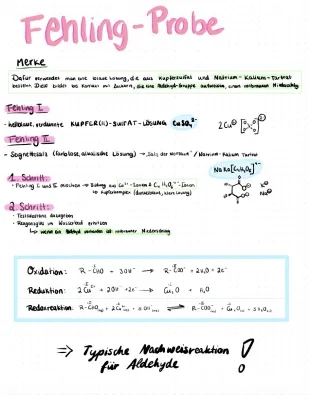 Fehling-Probe
Merke
Dafür verwendet man eine Lösung, die aus Kupfersulfat und Natrium-Kalium-Tartrat
besteht. Diese bildet bei Kontakt mit Zuckern, die eine Aldehyd-Gruppe aufweisen, einen rotbraunen Niederschlag
Fehling I
- hellblaue, verdünnte KUPFER(II)-SULFAT-LÖSUNG CuSO₄²⁻
2 Cu
Fehling II
- Seignettesalz (farblose, alkalische Lösung) → Salz der / Natrium-Kalium Tartrat
NaKa[C₄H₄O₆]²⁻
1. Schritt:
- Fehling I und II mischen → Bildung aus Cu²⁺-Ionen & C₄H₄O₆²⁻-Ionen
↳ Kupferkomplex (dunkelblaue, klare Lösung)
K⊕
Na⊕
2. Schritt:
- Testsubstanz dazugeben
- Reagenzglas im Wasserbad erhitzen
↳ wenn ein Aldehyd vorhanden ist rotbrauner Niederschlag
Oxidation: R-CHO + 3OH⁻ → R-COO⁻ + 2H₂O + 2e⁻
Reduktion: 2Cu²⁺ + 2OH⁻ + 2e⁻ → Cu₂O + H₂O
Redoxreaktion: R-CHO + 2Cu²⁺ + 5OH⁻ ⇌ R-COO⁻ + Cu₂O + 3H₂O
⇒ Typische Nachweisreaktion
für Aldehyde !